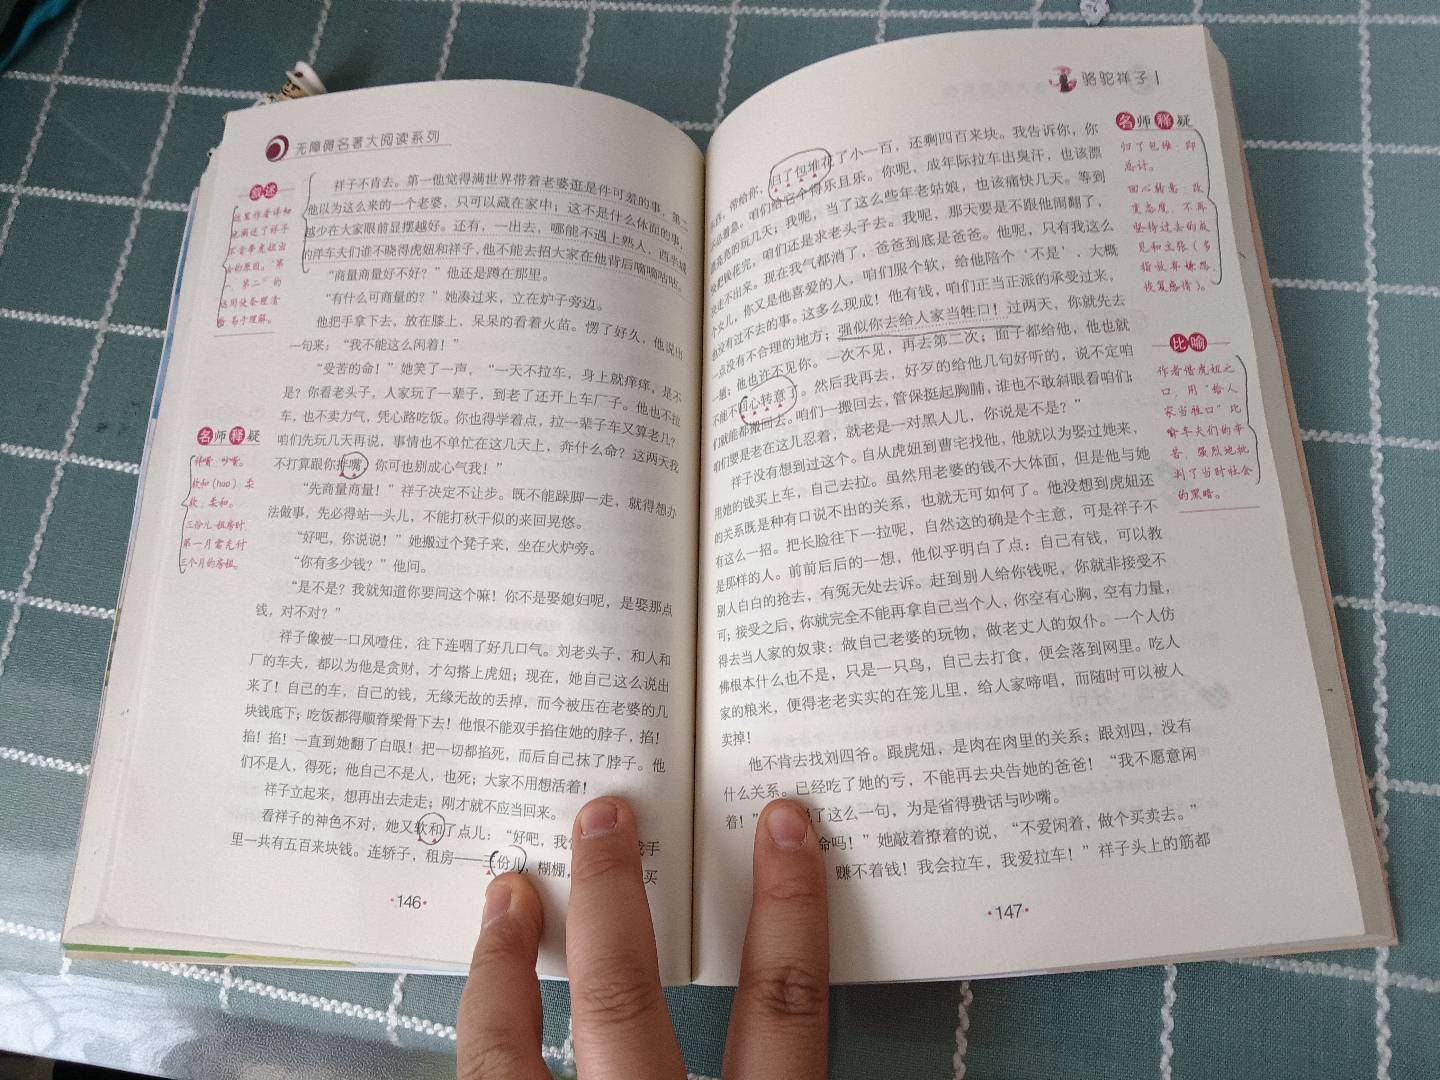 无障碍名著大阅读系列
叙述
这里作者详细
地阐述了祥子
不肯带虎妞出
去的原因。“第
一、第二”的
运用使条理清
晰,易于理解。
名师释疑
拌嘴:吵嘴。
软和(huo):柔
软;柔和。
三份儿:租房时,
第一月需先付
三个月的房租。
祥子不肯去。第一他觉得满世界带着老婆逛是件可羞的事,第二
他以为这么来的一个老婆,只可以藏在家中;这不是什么体面的事,
越少在大家眼前显摆越好。还有,一出去,哪能不遇上熟人,西半城
的洋车夫们谁不晓得虎妞和祥子,他不能去招大家在他背后嘀嘀咕咕。
“商量商量好不好?”他还是蹲在那里。
“有什么可商量的?”她凑过来,立在炉子旁边。
他把手拿下去,放在膝上,呆呆的看着火苗。愣了好久,他说出
一句来:“我不能这么闲着!”
“受苦的命!”她笑了一声,“一天不拉车,身上就痒痒,是不
是?你看老头子,人家玩了一辈子,到老了还开上车厂子。他也不拉
车,也不卖力气,凭心路吃饭。你也得学着点,拉一辈子车又算老几?
咱们先玩几天再说,事情也不单忙在这几天上,奔什么命?这两天我
不打算跟你拌嘴,你可也别成心气我!”
“先商量商量!”祥子决定不让步。既不能跺脚一走,就得想办
法做事,先必得站一头儿,不能打秋千似的来回晃悠。
“好吧,你说说!”她搬过个凳子来,坐在火炉旁。
“你有多少钱?”他问。
“是不是?我就知道你要问这个嘛!你不是娶媳妇呢,是娶那点
钱,对不对?”
祥子像被一口风噎住,往下连咽了好几口气。刘老头子,和人和
厂的车夫,都以为他是贪财,才勾搭上虎妞;现在,她自己这么说出
来了!自己的车,自己的钱,无缘无故的丢掉,而今被压在老婆的几
块钱底下;吃饭都得顺脊梁骨下去!他恨不能双手掐住她的脖子,掐!
掐!掐!一直到她翻了白眼!把一切都掐死,而后自己抹了脖子。他
们不是人,得死;他自己不是人,也死;大家不用想活着!
祥子立起来,想再出去走走;刚才就不应当回来。
看祥子的神色不对,她又软和了点儿:“好吧,我 手
里一共有五百来块钱。连轿子,租房——三份儿,糊棚, 买
·146·
骆驼祥子
,带给你,归了包堆花了小一百,还剩四百来块。我告诉你,你
不必着急。咱们给它个得乐且乐。你呢,成年际拉车出臭汗,也该漂
漂亮亮的玩几天;我呢,当了这么些年老姑娘,也该痛快几天。等到
快把钱花完,咱们还是求老头子去。我呢,那天要是不跟他闹翻了,
决走不出来。现在我气都消了,爸爸到底是爸爸。他呢,只有我这么
个女儿,你又是他喜爱的人,咱们服个软,给他陪个‘不是’,大概
也没有过不去的事。这多么现成!他有钱,咱们正当正派的承受过来,
一点没有不合理的地方;强似你去给人家当牲口!过两天,你就先去
一趟;他也许不见你。一次不见,再去第二次;面子都给他,他也就
不能不回心转意了。然后我再去,好歹的给他几句好听的,说不定咱
们就能都搬回去。咱们一搬回去,管保挺起胸脯,谁也不敢斜眼看咱们;
咱们要是老在这儿忍着,就老是一对黑人儿,你说是不是?”
祥子没有想到过这个。自从虎妞到曹宅找他,他就以为娶过她来,
用她的钱买上车,自己去拉。虽然用老婆的钱不大体面,但是他与她
的关系既是种有口说不出的关系,也就无可如何了。他没想到虎妞还
有这么一招。把长脸往下一拉呢,自然这的确是个主意,可是祥子不
是那样的人。前前后后的一想,他似乎明白了点:自己有钱,可以教
别人白白的抢去,有冤无处去诉。赶到别人给你钱呢,你就非接受不
可;接受之后,你就完全不能再拿自己当个人,你空有心胸,空有力量,
得去当人家的奴隶:做自己老婆的玩物,做老丈人的奴仆。一个人仿
佛根本什么也不是,只是一只鸟,自己去打食,便会落到网里。吃人
家的粮米,便得老老实实的在笼儿里,给人家啼唱,而随时可以被人
卖掉!
他不肯去找刘四爷。跟虎妞,是肉在肉里的关系;跟刘四,没有
什么关系。已经吃了她的亏,不能再去央告她的爸爸!“我不愿意闲
着!” 了这么一句,为是省得费话与吵嘴。
命吗!”她敲着撩着的说,“不爱闲着,做个买卖去。”
赚不着钱!我会拉车,我爱拉车!”祥子头上的筋都
·147·
名师释疑
归了包堆:即
总计。
回心转意:改
变态度,不再
坚持过去的成
见和主张(多
指放弃嫌怨,
恢复感情)。
比喻
作者借虎妞之
口,用“给人
家当牲口”比
喻车夫们的辛
苦,强烈地批
判了当时社会
的黑暗。